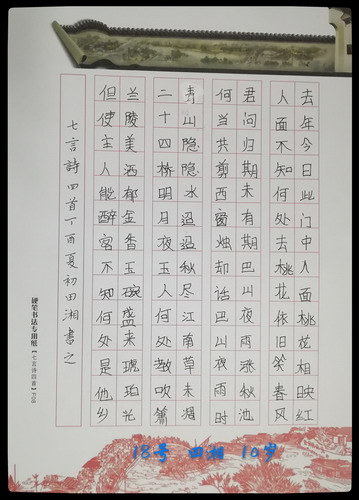 去年今日此门中人面桃花相映红
人面不知何处去桃花依旧笑春风
君问归期未有期巴山夜雨涨秋池
何当共剪西窗烛却话巴山夜雨时
青山隐隐水迢迢秋尽江南草未凋
二十四桥明月夜玉人何处教吹箫
兰陵美酒郁金香玉碗盛来琥珀光
但使主人能醉客不知何处是他乡
七言詩四首丁酉夏初田湘書之
硬笔书法专用纸【七言诗四首】P08
18号 田湘 10岁